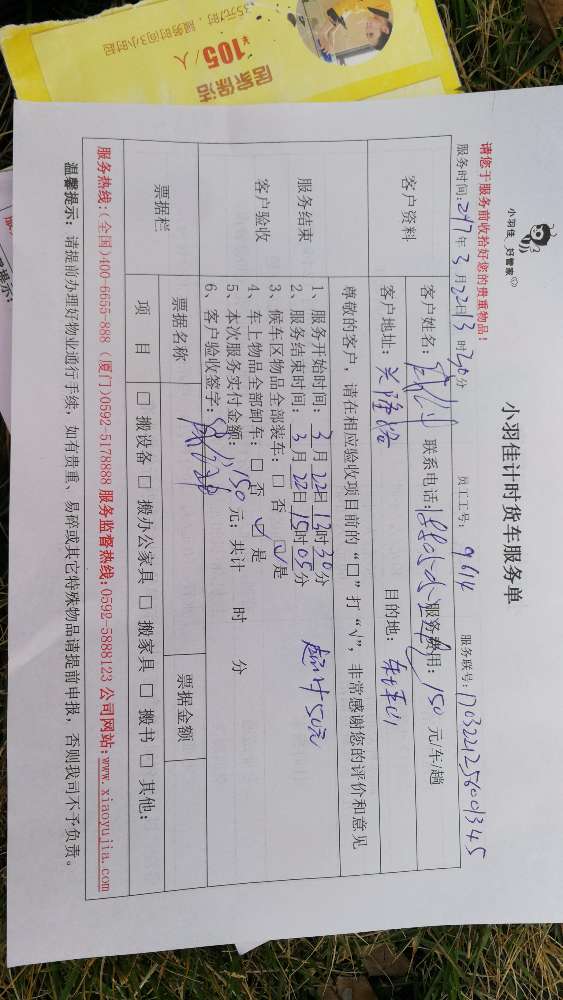 35元/时，服务时间3小时起
¥105/人
居家保洁
小羽佳 好管家
小羽佳计时货车服务单
请您于服务前收拾好您的贵重物品！
员工工号：9614
服务联号：1703221256001345
服务时间：2017年3月22日13时30分
客户资料
客户姓名：
联系电话：
服务费用：150元/车/趟
客户地址：兴隆路
目的地：
尊敬的客户，请在相应验收项目前的“□”打“√”，非常感谢您的评价和意见
服务结束
客户验收
1、服务开始时间：3月22日13时30分
2、服务结束时间：3月22日15时05分
超时50元
3、候车区物品全部装车：□ 否 ☑ 是
4、车上物品全部卸车：□ 否 ☑ 是
5、本次服务实付金额：150元；共计 时 分
6、客户验收签字：
票据栏
票据名称
票据金额
项 目
□ 搬设备 □ 搬办公家具 □ 搬家具 □ 搬书 □ 其他：
服务热线：(全国)400-6655-888 (厦门)0592-5178888 服务监督热线：0592-5888123 公司网站：www.xiaoyujia.com
温馨提示：请提前办理好物业通行手续，如有贵重、易碎或其它特殊物品请提前申报，否则我司不予负责。